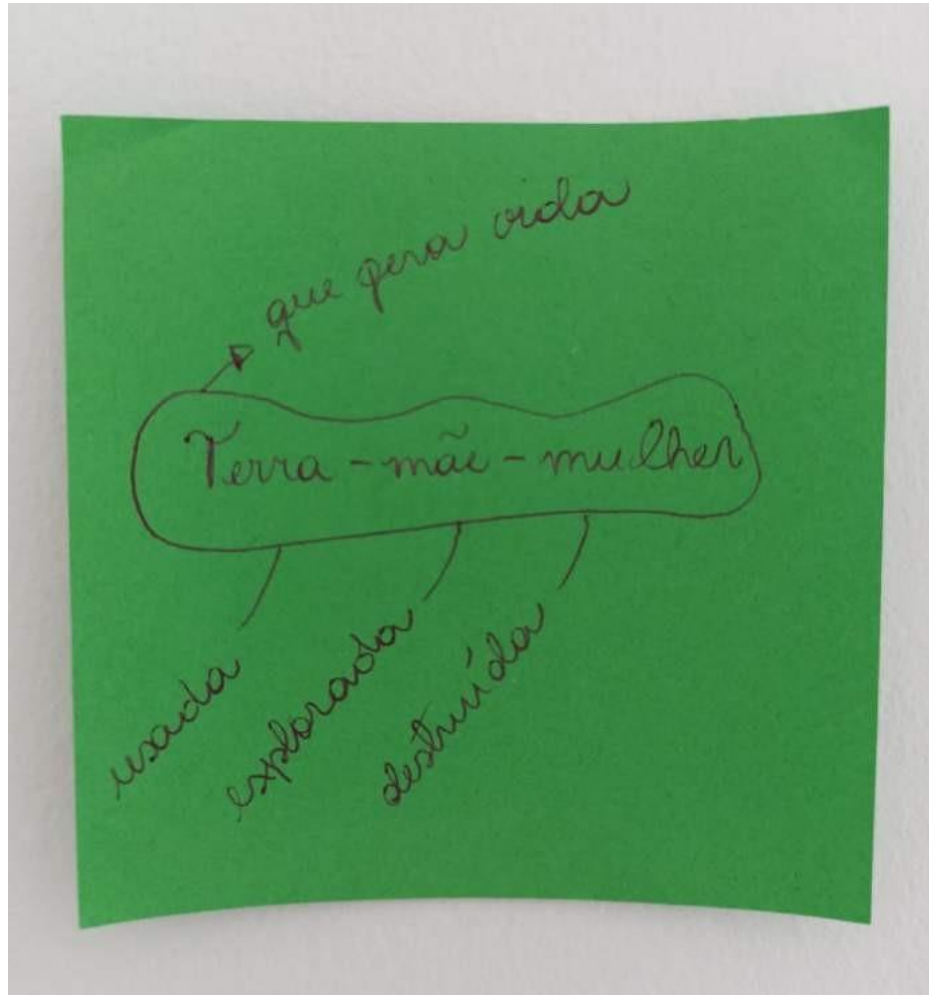 que gera vida
Terra - mãe - mulher
usada
explorada
destruída